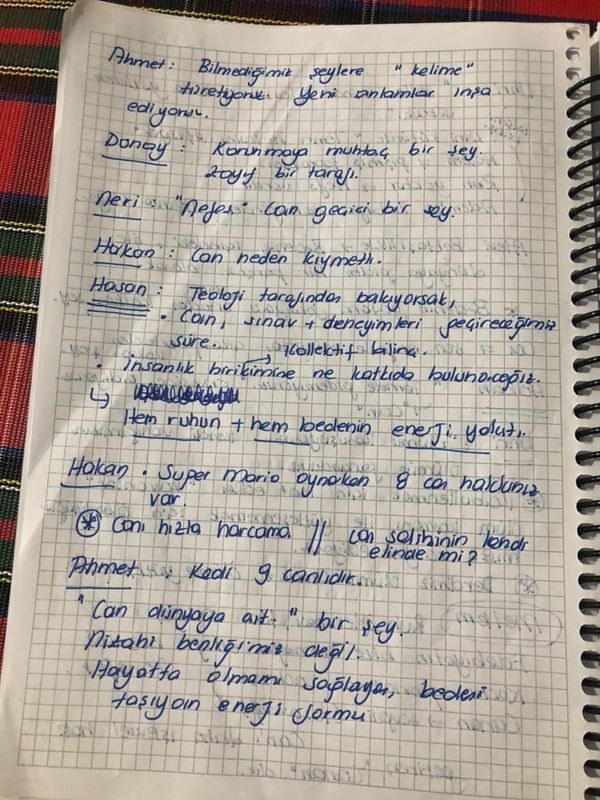 Ahmet : Bilmediğimiz şeylere "kelime"
türetiyoruz. Yeni anlamlar inşa
ediyoruz.
Donay : Korunmaya muhtaç bir şey.
Zayıf bir tarafı.
Neri "Nefes" Can geçici bir şey.
Hakan : Can neden kıymetli.
Hasan : Teoloji tarafından bakıyorsak,
• Can, sınav + deneyimleri geçireceğimiz
süre. Kollektif bilinç.
• İnsanlık birikimine ne katkıda bulunacağız.
↳ Hem ruhun + hem bedenin enerji yakıtı.
Hakan • Super Mario oynarken 8 can hakkınız
var.
* Canı hızla harcama // can sahibinin kendi
elinde mi?
Ahmet • Kedi 9 canlıdır.
"Can dünyaya ait" bir şey.
Nizahi benliğimiz değil.
Hayatta olmamı sağlayan, bedeni
taşıyan enerji formu